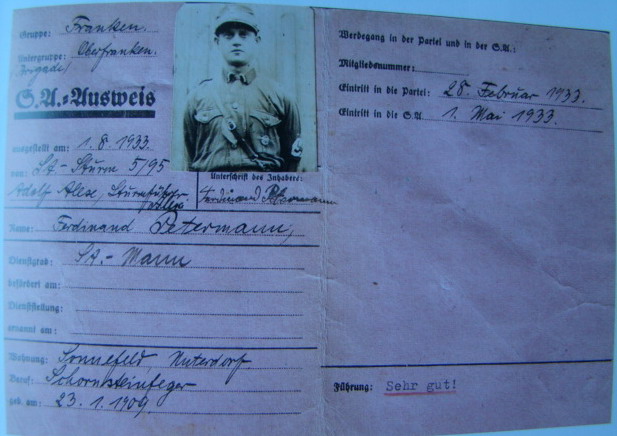 Gruppe: Franken.
Untergruppe: Oberfranken.
(Brigade)
S.A.=Ausweis
ausgestellt am: 1. 8. 1933.
von: SA-Sturm 5/95
Adolf
Unterschrift des Inhabers:
Ferdinand Petermann
Name: Ferdinand Petermann,
Dienstgrad: SA.-Mann
befördert am:
Dienststellung:
ernannt am:
Wohnung: Sonnefeld, Unterdorf.
Beruf: Schornsteinfeger
geb. am: 23. 1. 1909.
Werdegang in der Partei und in der S.A.:
Mitgliedsnummer:
Eintritt in die Partei: 28. Februar 1933.
Eintritt in die S.A. 1. Mai 1933.
Führung: Sehr gut!